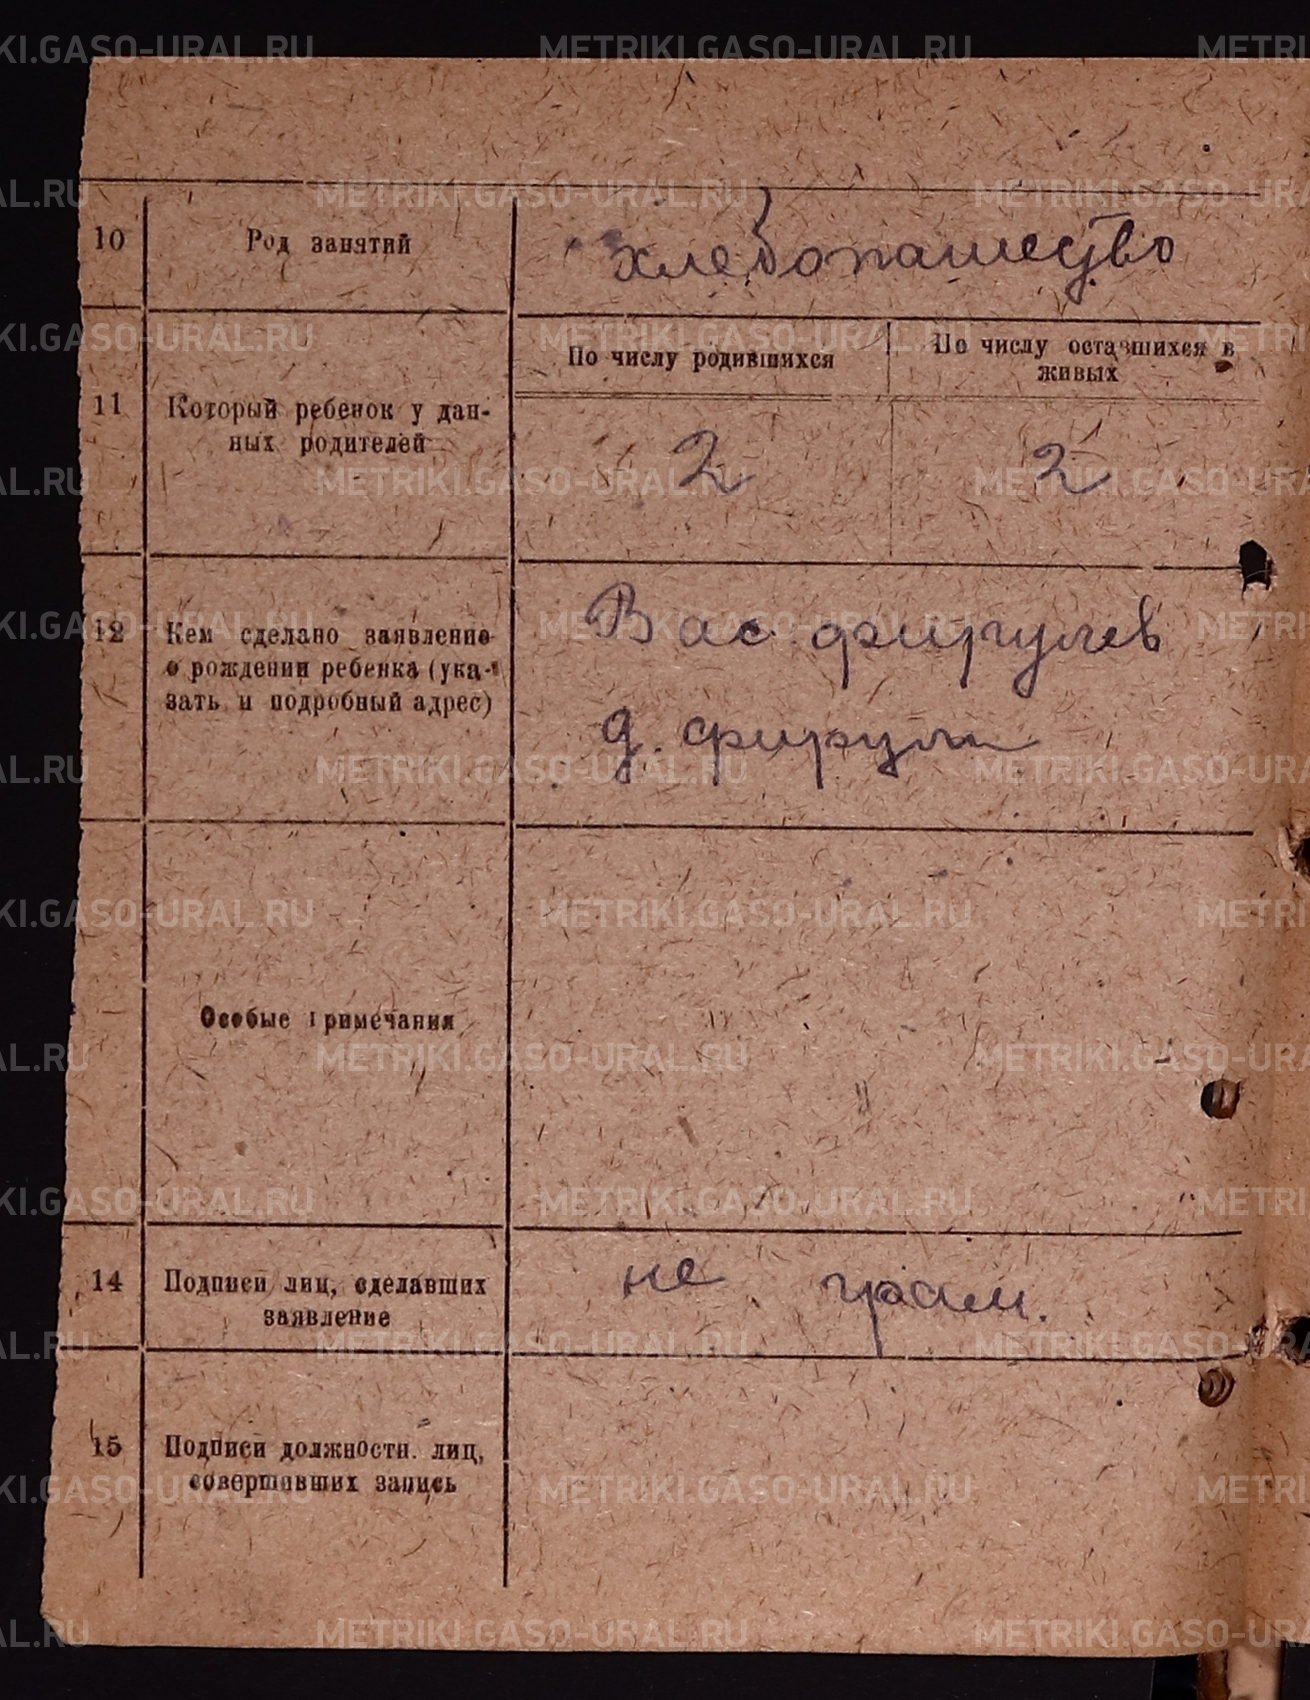 10
Род занятий
хлебопашество
11
Который ребенок у дан-
ных родителей
По числу родившихся
По числу оставшихся в
живых
2
2
12
Кем сделано заявление
о рождении ребенка (ука-
зать и подробный адрес)
Вас. фирулев
д. фирули
Особые примечания
14
Подписи лиц, сделавших
заявление
не грам.
15
Подписи должностн. лиц,
совершивших запись
METRIKI.GASO-URAL.RU